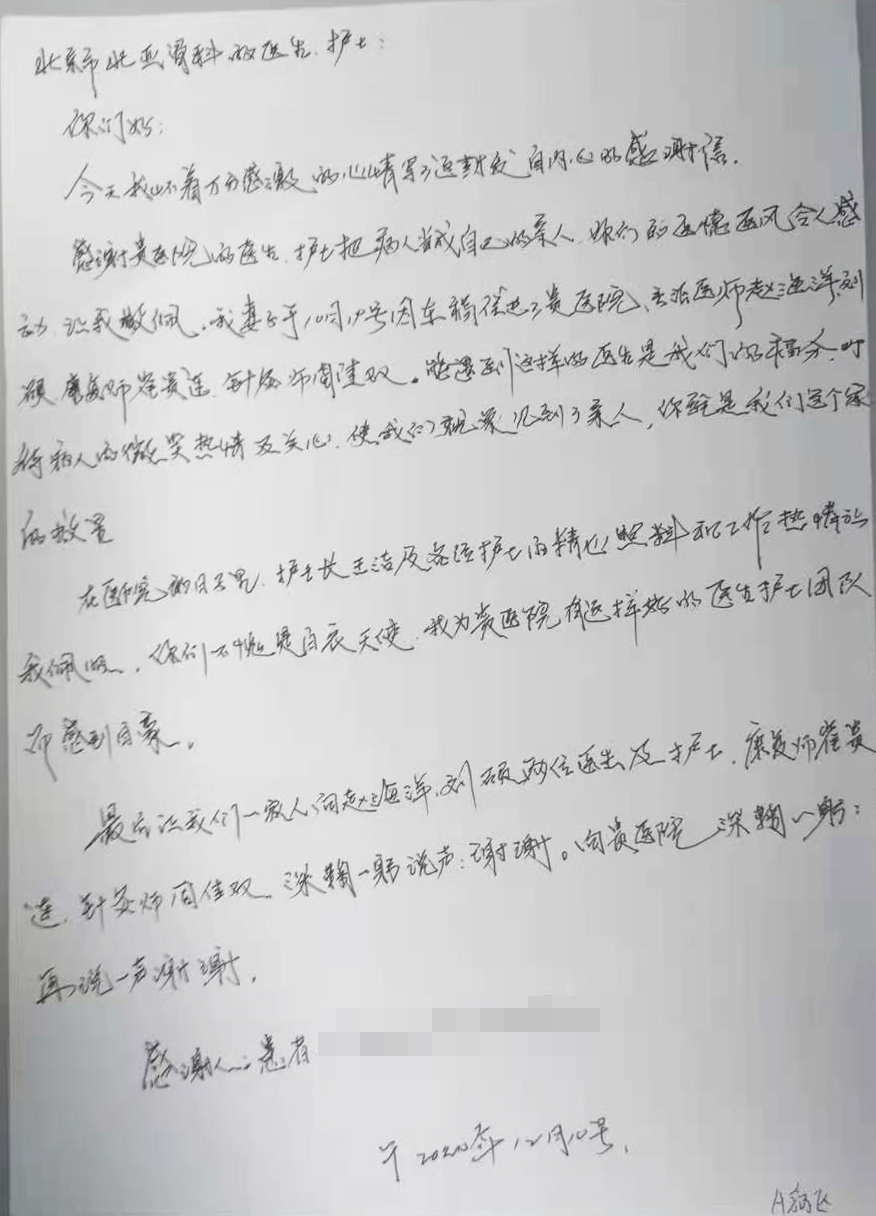 北京市北亚骨科的医生、护士:
你们好:
今天我怀着万分感激的心情写了这封发自内心的感谢信.
感谢贵医院的医生、护士把病人当成自己的亲人、你们的医德医风令人感
动、让我敬佩。我妻子于10月17号因车祸住进了贵医院、主治医师赵海洋、刘
硕、康复师崔贵连、针灸师周佳双。能遇到这样的医生是我们的福分、对
待病人的微笑热情及关心、使我们就象见到了亲人,你能是我们这个家
的救星
在医院的日子里、护士长王洁及各位护士的精心照料和工作热情让
我佩服、你们不愧是白衣天使、我为贵医院有这样好的医生护士团队
而感到自豪。
最后让我们一家人向赵海洋、刘硕两位医生及护士、康复师崔贵
连、针灸师周佳双、深鞠一躬说声:谢谢。向贵医院深鞠一躬:
再说一声谢谢.
感谢人:患者
于2020年12月10号.